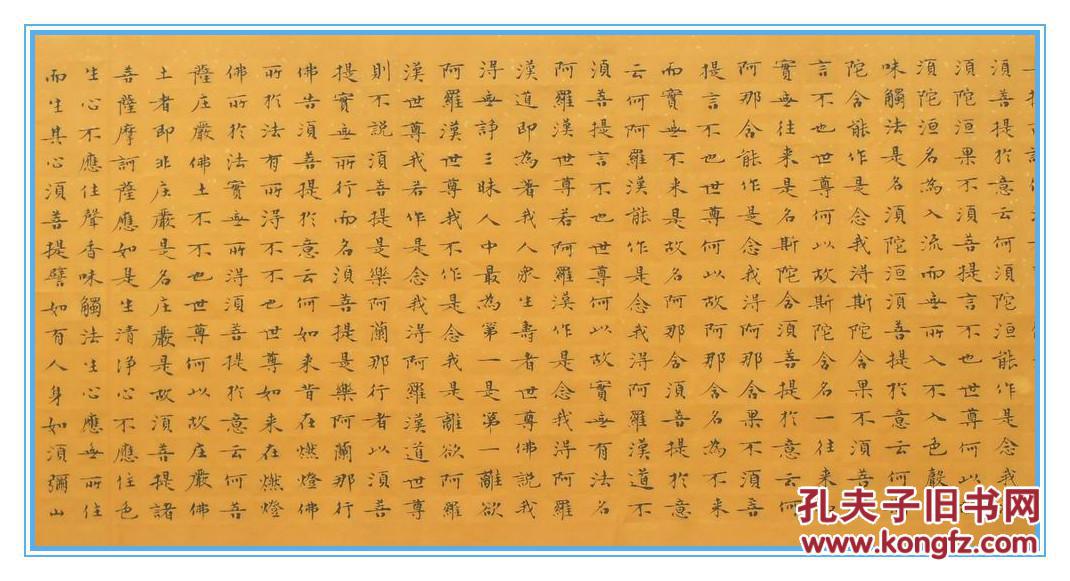 須菩提於意云何須陀洹能作是念我
須陀洹果不須菩提言不也世尊何以
須陀洹名為入流而無所入不入色
味觸法是名須陀洹須菩提於意云何
陀含能作是念我得斯陀含果不須菩
言不也世尊何以故斯陀含名一往來
實無往來是名斯陀含須菩提於意云何
阿那含能作是念我得阿那含果不須菩
提言不也世尊何以故阿那含名為不來
而實無不來是故名阿那含須菩提於意
云何阿羅漢能作是念我得阿羅漢道不
須菩提言不也世尊何以故實無有法名
阿羅漢世尊若阿羅漢作是念我得阿羅
漢道即為著我人眾生壽者世尊佛說我
得無諍三昧人中最為第一是第一離欲
阿羅漢世尊我不作是念我是離欲阿羅
漢世尊我若作是念我得阿羅漢道世尊
則不說須菩提是樂阿蘭那行者以須菩
提實無所行而名須菩提是樂阿蘭那行
佛告須菩提於意云何如來昔在燃燈佛
所於法有所得不不也世尊如來在燃燈
佛所於法實無所得須菩提於意云何菩
薩庄嚴佛土不不也世尊何以故庄嚴佛
土者即非庄嚴是名庄嚴是故須菩提諸
菩薩摩訶薩應如是生清淨心不應住色
生心不應住聲香味觸法生心應無所住
而生其心須菩提譬如有人身如須彌山
孔夫子旧书网
www.kongfz.com